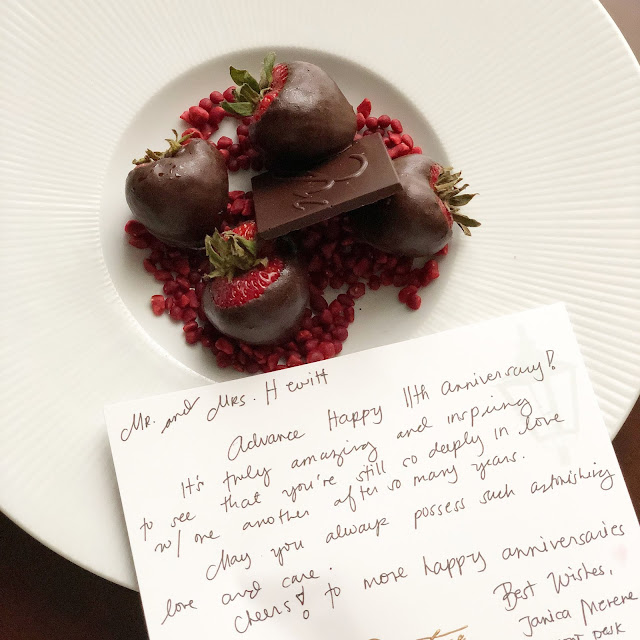 Mr. and Mrs. Hewitt
Advance Happy 11th anniversary!
It's truly amazing and inspiring
to see that you're still so deeply in love
w/ one another after so many years.
May you always possess such astonishing
love and care.
Cheers! to more happy anniversaries
Best Wishes,
Janica Merene
Desk